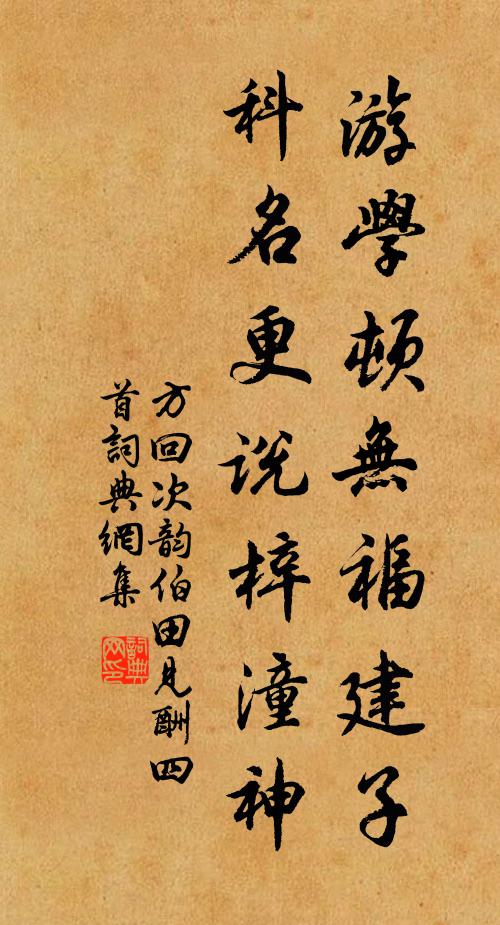 游學頓無福建子
科名更说梓潼神
方回次韵伯田見酬四
首詞典網集
詞典
网印